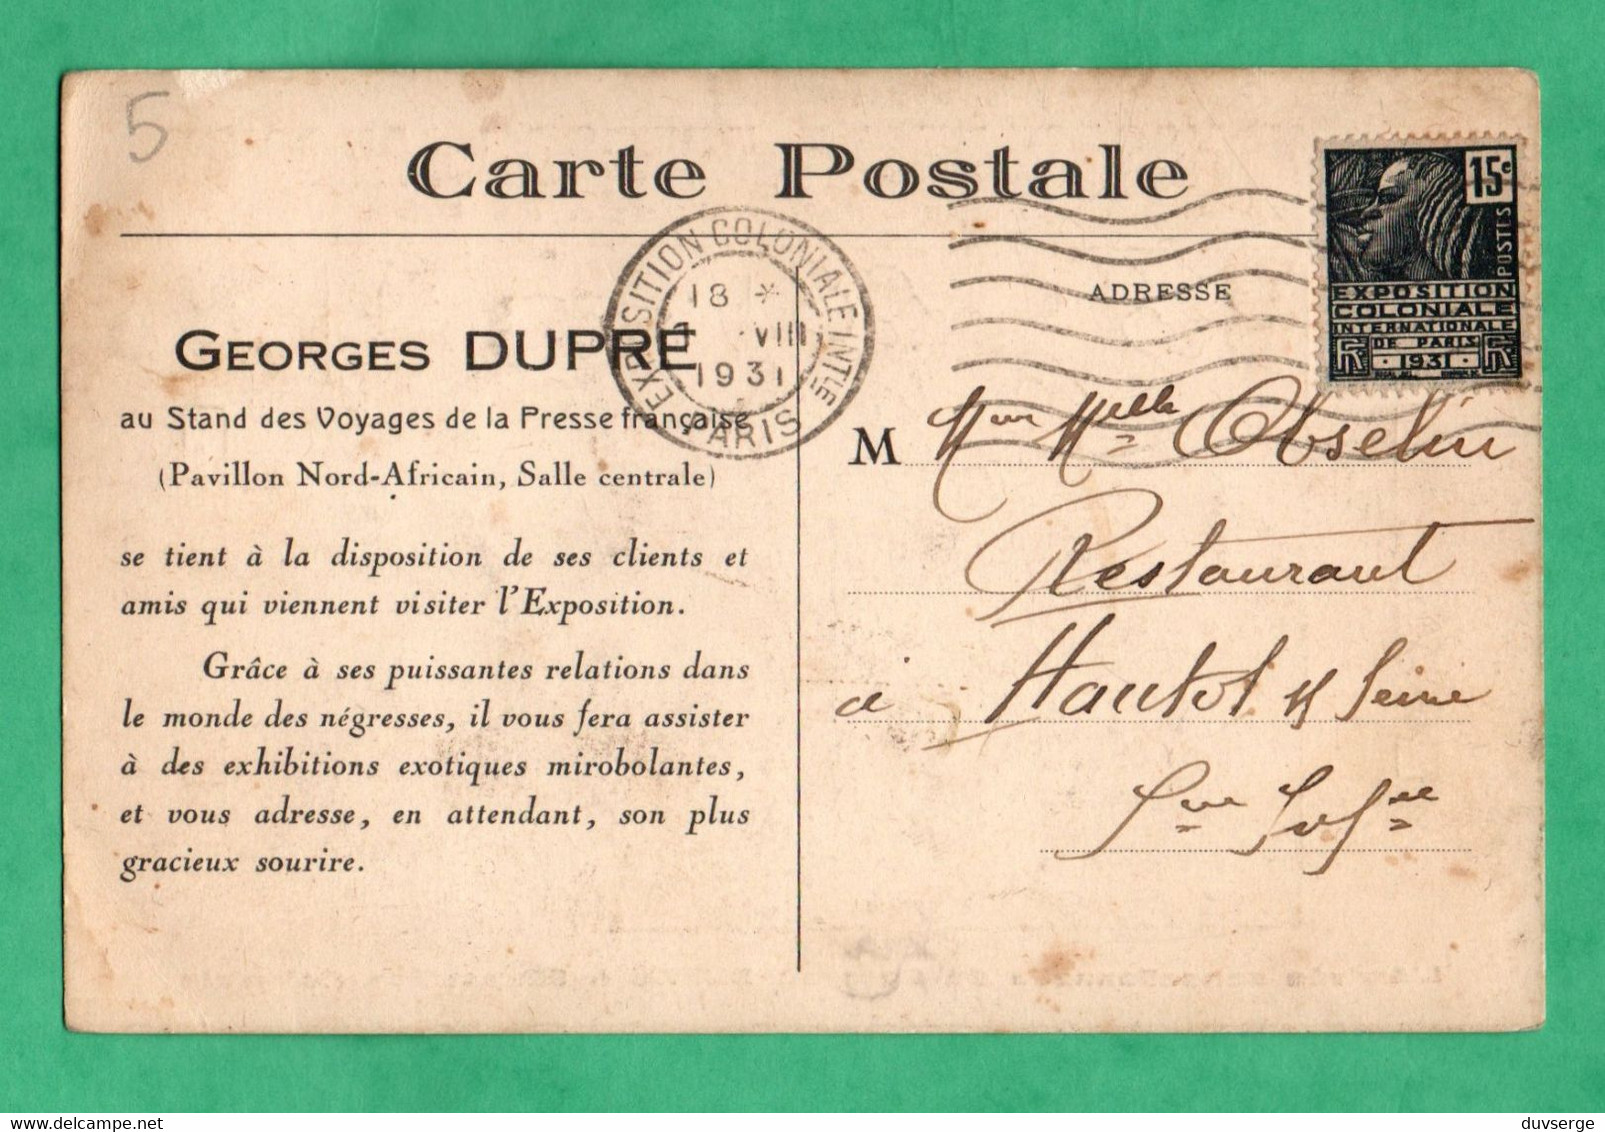 5
Carte Postale
EXPOSITION COLONIALE INTLE
PARIS
18 *
VIII
1931
15c
POSTES
EXPOSITION
COLONIALE
INTERNATIONALE
DE PARIS
1931
ADRESSE
GEORGES DUPRÉ
au Stand des Voyages de la Presse française
(Pavillon Nord-Africain, Salle centrale)
se tient à la disposition de ses clients et
amis qui viennent visiter l'Exposition.
Grâce à ses puissantes relations dans
le monde des négresses, il vous fera assister
à des exhibitions exotiques mirobolantes,
et vous adresse, en attendant, son plus
gracieux sourire.
M Melle Obselin
Restaurant
à Hautot s/ Seine
Sne Infre
duvserge
delcampe.net